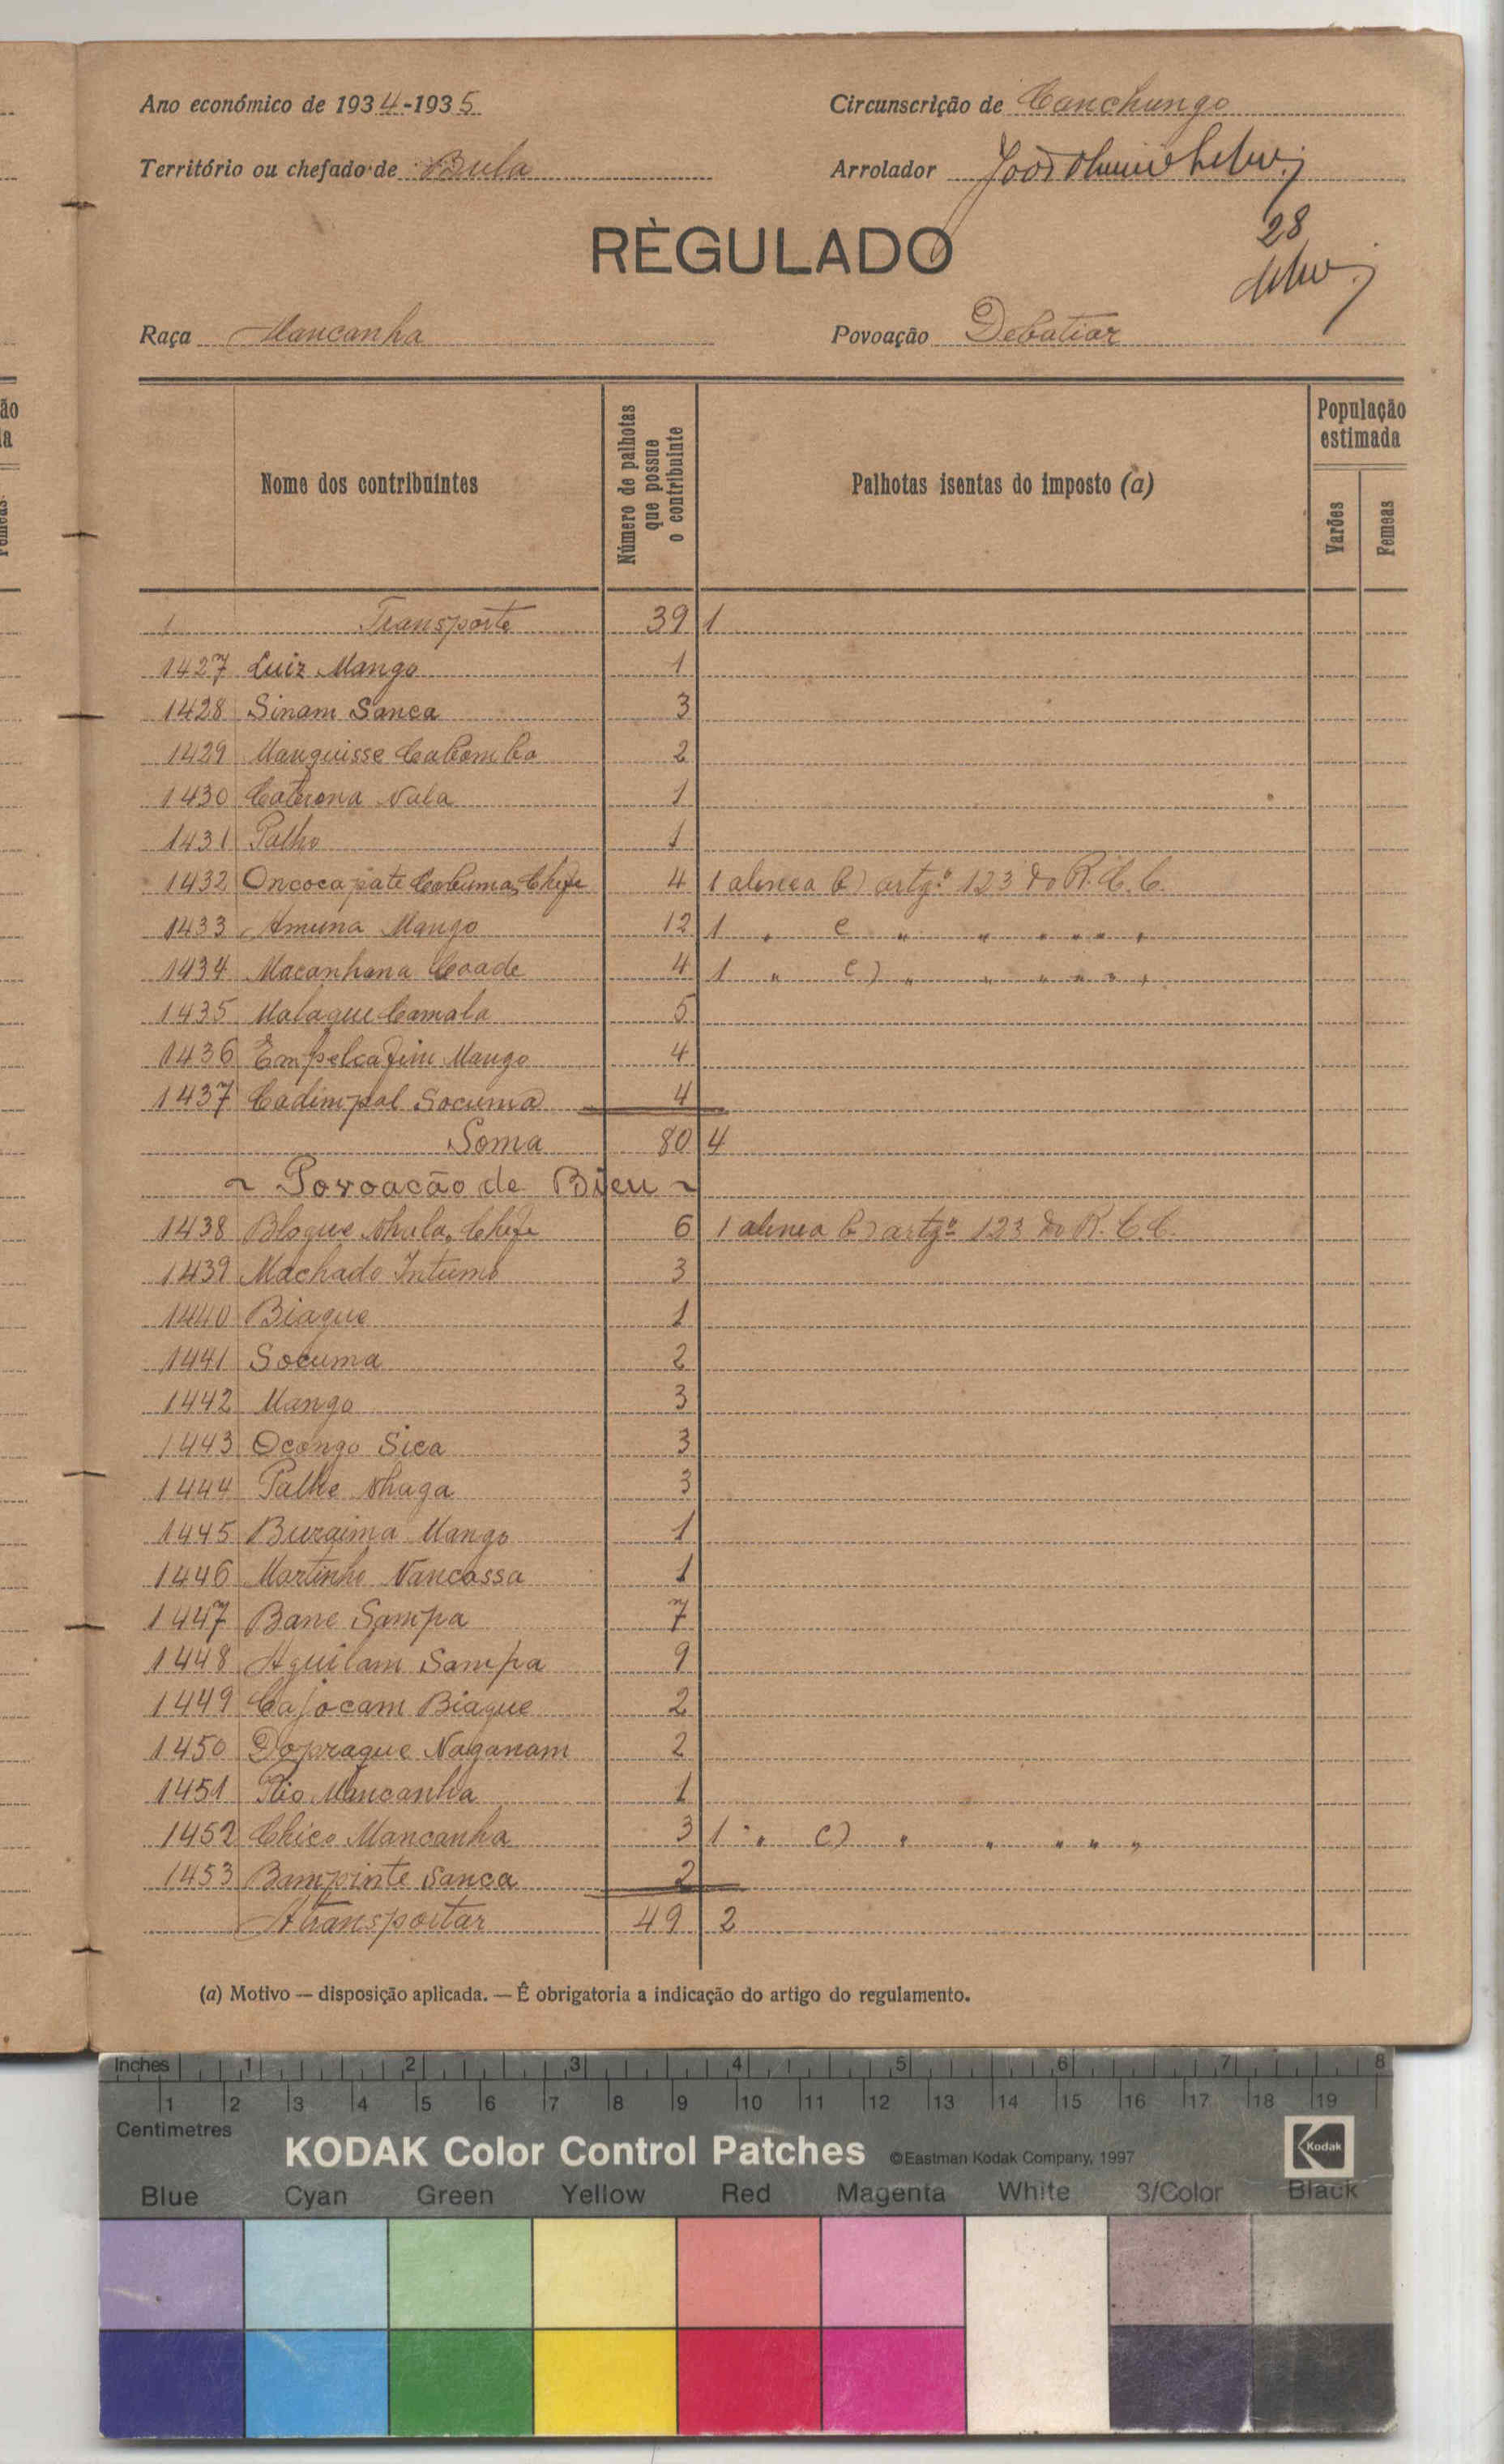 Ano económico de 1934-1935
Circunscrição de Canchungo
Território ou chefado de Bula
Arrolador
28
RÈGULADO
Raça Mancanha
Povoação Debatiar
Nome dos contribuintes
Número de palhotas que possue o contribuinte
Palhotas isentas do imposto (a)
População estimada
Varões
Femeas
Transporte 39 1
1427 Luiz Mango 1
1428 Sinam Sanca 3
1429 Manguisse Cabomba 2
1430 Caterona Nala 1
1431 Palho 1
1432 Oncocapate Chefe 4 1 alinea b) artgº 123 do R.C.C.
1433 Amuna Mango 12 1 " c " " " " " "
1434 Macanhana Coade 4 1 " c) " " " " " "
1435 Malaque Camala 5
1436 Mango 4
1437 Cadimpal Socuma 4
Soma 80 4
~ Povoacão de Bijeu ~
1438 Bloque Nhala, Chefe 6 1 alinea b) artgº 123 do R.C.C.
1439 Machado Intumo 3
1440 Biaque 1
1441 Socuma 2
1442 Mango 3
1443 Ocongo Sica 3
1444 Palhe Nhaga 3
1445 Buraima Mango 1
1446 Martinho Nancassa 1
1447 Bane Sampa 7
1448 Aguilam Sampa 9
1449 Cajocam Biaque 2
1450 Dopraque Naganam 2
1451 Mancanha 1
1452 Chico Mancanha 3 1 " c) " " " " "
1453 Bampinte Sanca 2
A transportar 49 2
(a) Motivo — disposição aplicada. — É obrigatoria a indicação do artigo do regulamento.
Inches 1 2 3 4 5 6 7 8
1 2 3 4 5 6 7 8 9 10 11 12 13 14 15 16 17 18 19
Centimetres
KODAK Color Control Patches ©Eastman Kodak Company, 1997 Kodak
Blue Cyan Green Yellow Red Magenta White 3/Color Black